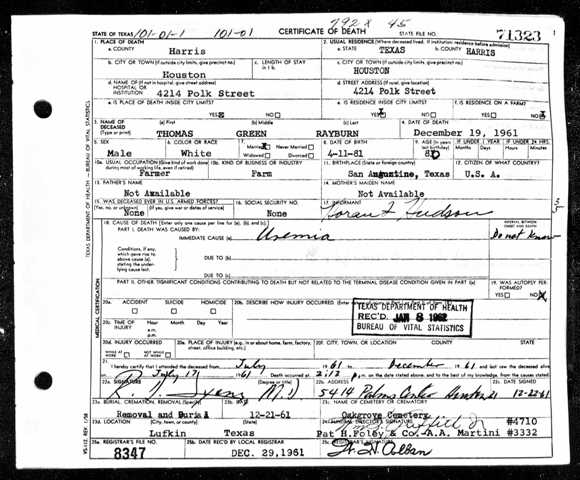 792 x 45
STATE OF TEXAS 101-01-1 101-01 CERTIFICATE OF DEATH STATE FILE NO. 71323
1. PLACE OF DEATH 2. USUAL RESIDENCE (Where deceased lived. If institution: residence before admission)
a. COUNTY Harris a. STATE TEXAS b. COUNTY HARRIS
b. CITY OR TOWN (If outside city limits, give precinct no.) c. LENGTH OF STAY in 1 b. c. CITY OR TOWN (If outside city limits, give precinct no.)
Houston HOUSTON
d. NAME OF (If not in hospital, give street address) HOSPITAL OR INSTITUTION 4214 Polk Street d. STREET ADDRESS (If rural, give location) 4214 Polk Street
e. IS PLACE OF DEATH INSIDE CITY LIMITS? e. IS RESIDENCE INSIDE CITY LIMITS? f. IS RESIDENCE ON A FARM?
YES X NO YES X NO YES NO X
3. NAME OF DECEASED (Type or print) (a) First (b) Middle (c) Last 4. DATE OF DEATH
THOMAS GREEN RAYBURN December 19, 1961
5. SEX 6. COLOR OR RACE 7. Married Never Married Widowed Divorced 8. DATE OF BIRTH 9. AGE (In years last birthday) IF UNDER 1 YEAR Months Days IF UNDER 24 HRS. Hours Min.
Male White 4-11-81 80
10a. USUAL OCCUPATION (Give kind of work done during most of working life, even if retired) 10b. KIND OF BUSINESS OR INDUSTRY 11. BIRTHPLACE (State or foreign country) 12. CITIZEN OF WHAT COUNTRY?
Farmer Farm San Augustine, Texas U. S. A.
13. FATHER'S NAME 14. MOTHER'S MAIDEN NAME
Not Available Not Available
15. WAS DECEASED EVER IN U.S. ARMED FORCES? (Yes, no, or unknown) (If yes, give war or dates of service) 16. SOCIAL SECURITY NO. 17. INFORMANT
None None Hudson
18. CAUSE OF DEATH (Enter only one cause per line for (a), (b), and (c).) INTERVAL BETWEEN ONSET AND DEATH
PART I. DEATH WAS CAUSED BY:
IMMEDIATE CAUSE (a) Uremia Do not Know
Conditions, if any, which gave rise to above cause (a), stating the underlying cause last.
DUE TO (b)
DUE TO (c)
PART II. OTHER SIGNIFICANT CONDITIONS CONTRIBUTING TO DEATH BUT NOT RELATED TO THE TERMINAL DISEASE CONDITION GIVEN IN PART I(a) 19. WAS AUTOPSY PERFORMED?
YES NO X
20a. ACCIDENT SUICIDE HOMICIDE 20b. DESCRIBE HOW INJURY OCCURRED.
20c. TIME OF INJURY Hour Month Day Year a.m. p.m.
TEXAS DEPARTMENT OF HEALTH
REC'D. JAN 8 1962
BUREAU OF VITAL STATISTICS
20d. INJURY OCCURRED WHILE AT WORK NOT WHILE AT WORK 20e. PLACE OF INJURY (e.g., in or about home, farm, factory, street, office building, etc.) 20f. CITY, TOWN, OR LOCATION COUNTY STATE
21. I hereby certify that I attended the deceased from July 61 to December 61 and last saw the deceased alive
on July 17 61. Death occurred at 2:15 p.m. on the date stated above; and to the best of my knowledge, from the causes stated.
22a. SIGNATURE (Degree or title) 22b. ADDRESS 22c. DATE SIGNED
M.D. 5414 12-22-61
23a. BURIAL, CREMATION, REMOVAL 23b. DATE 23c. NAME OF CEMETERY OR CREMATORY
Removal and Burial 12-21-61 Oakgrove Cemetery
23d. LOCATION (City, town, or county) (State) 24. FUNERAL DIRECTOR'S SIGNATURE #4710
Lufkin Texas Pat H. Foley & Co. A.A. Martini #3332
25a. REGISTRAR'S FILE NO. 25b. DATE REC'D BY LOCAL REGISTRAR 25c. REGISTRAR'S SIGNATURE
8347 DEC. 29, 1961
TEXAS DEPARTMENT OF HEALTH — BUREAU OF VITAL STATISTICS
MEDICAL CERTIFICATION